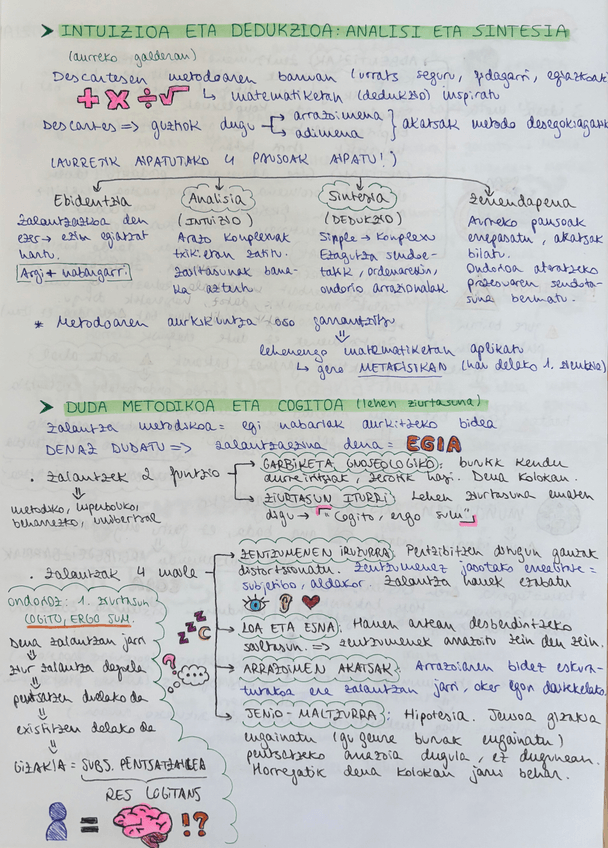 INTUIZIOA ETA DEDUKZIOA: ANALISI ETA SINTESIA
(aurreko galderan)
Descartesen metodoaren barruan (urrats seguru, fidagarri, egiazkoak
+ × ÷ √ ↳ matematiketan (dedukzio) inspiratu
Descartes => guztiok dugu arrazoimena
adimena } akatsak metodo desegokiagatik
(AURRETIK AIPATUTAKO 4 PAUSOAK AIPATU!)
Ebidentzia
Zalantzazkoa den
ezer → ezin egiatzat
hartu.
Argi + nabarigarri.
Analisia
(INTUIZIO)
Arazo konplexuak
txikietan zatitu.
Zailtasunak bana-
ka aztertu
Sintesia
(DEDUKZIO)
Sinple → konplexu
Ezagutza sendoe-
tatik, ordenarekin,
ondorio arrazionalak.
Zenbaketa
Aurreko pausoak
errepasatu, akatsak
bilatu.
Ondorioa ateratzeko
prozesuaren sendota-
suna bermatu.
* Metodoaren aurkikuntza oso garrantzitsu
⇓
lehenengo matematiketan aplikatu
↳ gero METAFISIKAN (hau delako 1. zientzia)
DUDA METODIKOA ETA COGITOA (lehen ziurtasuna)
Zalantza metodikoa = egi nabariak aurkitzeko bidea
DENAZ DUDATU => zalantzaezina dena = EGIA
· Zalantzek 2 funtzio
⇓
metodiko,
beharrezko, unibertsal
GARBIKETA GNOSEOLOGIKO: burutik kendu
aurreiritziak, zerotik hasi. Dena kolokan.
ZIURTASUN ITURRI: Lehen ziurtasuna ematen
digu → "Cogito, ergo sum"
· Zalantzak 4 maila
ZENTZUMENEN IRUZURRA: Pertzibitzen ditugun gauzak
distortsionatu. Zentzumenez jasotako errealitate =
subjetibo, aldakor. Zalantza hauek ezabatu
LOA ETA ESNA: Hauen artean desberdintzeko
zailtasun. => zentzumenek arrazoitu zein den zein.
ARRAZOIMEN AKATSAK: Arrazoiaren bidez eskura-
tutakoa ere zalantzan jarri, oker egon daitekelako.
JENIO-MALTZURRA: Hipotesia. Jenioa gizakia
engainatu (gu geure buruak engainatu)
pentsatzeko arrazoia dugula, ez dugunean.
Horregatik dena kolokan jarri behar.
ondorioz: 1. ziurtasun
COGITO, ERGO SUM.
Dena zalantzan jarri
⇓
ziur zalantza dagoela
⇓
pentsatzen duelako da
⇓
existitzen delako da
⇓
GIZAKIA = SUBS. PENTSATZAILEA
RES COGITANS
= !?
zzz
?
...